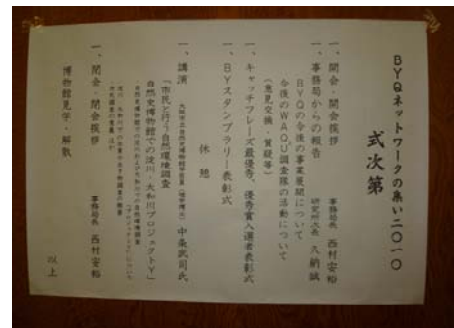 BYQネットワークの集い二〇一〇
式次第
一、開会・開会挨拶 事務局長 西村安裕
一、事務局からの報告 研究所次長 久納誠
BYQの今後の事業展開について
今後のWAQU調査隊の活動について
(意見交換・質疑等)
一、キャッチフレーズ最優秀、優秀賞入選者表彰式
一、BYスタンプラリー表彰式
休憩
一、講演 大阪市立自然史博物館学芸員 中条武司氏
「市民と行う自然環境調査
自然史博物館での淀川・大和川プロジェクトY」
一、閉会・閉会挨拶 事務局長 西村安裕
博物館見学・解散
以上